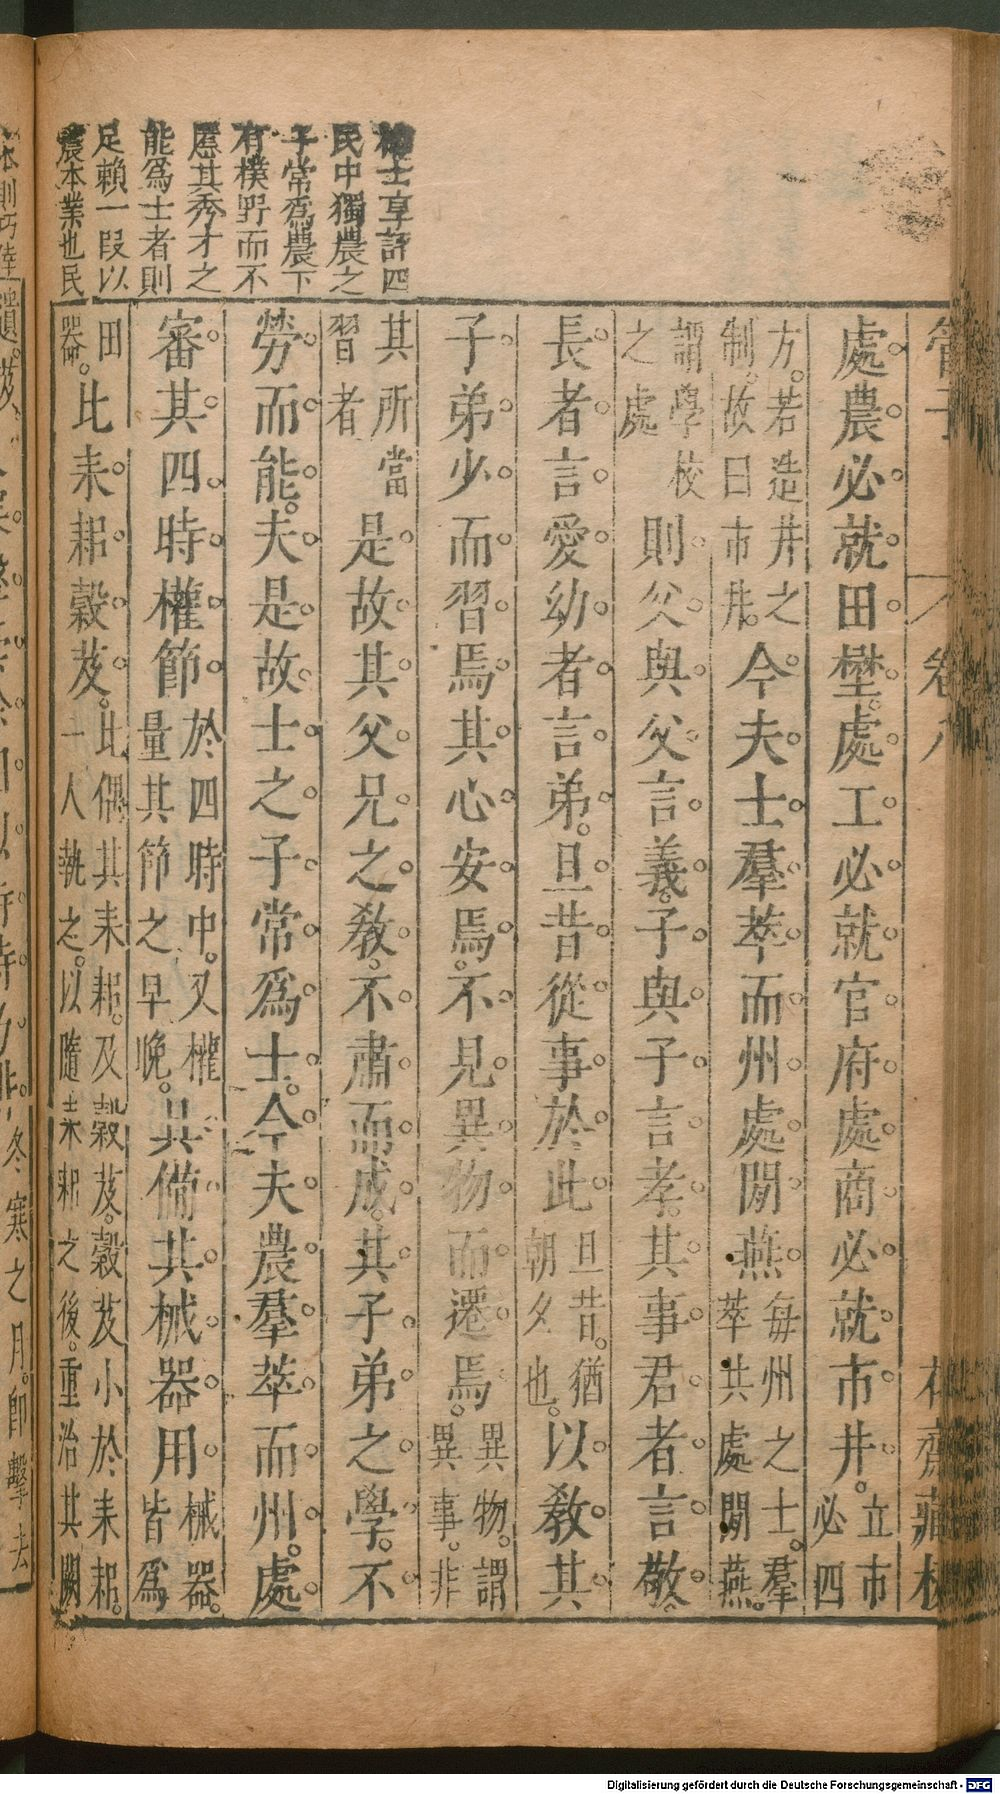 管子
卷八
花齋藏板
處農必就田壄。處工必就官府。處商必就市井。立市必四
方。若造井之制。故曰市井。今夫士羣萃而州處閒燕每州之士。羣萃共處閒燕。
謂學校之處則父與父言義。子與子言孝。其事君者言敬。
長者言愛幼者言弟。旦昔從事於此旦昔。猶朝夕也。以敎其
子弟少而習焉其心安焉。不見異物而遷焉。異物。謂異事。非
其所當習者是故其父兄之敎。不肅而成。其子弟之學。不
勞而能。夫是故士之子常爲士。今夫農羣萃而州。處
審其四時權節於四時中。又權量其節之早晚。具備其械器用械器。皆爲
田器。比耒耜穀芨。比偶其耒耜。及穀芨。穀芨小於耒耜。一人執之。以隨耒耜之後。重治其闕
士享評四
民中獨農之
子常爲農下
有樸野而不
慝其秀才之
能爲士者則
足賴一段以
農本業也民
冬寒之月。卽擊去
Digitalisierung gefördert durch die Deutsche Forschungsgemeinschaft - DFG